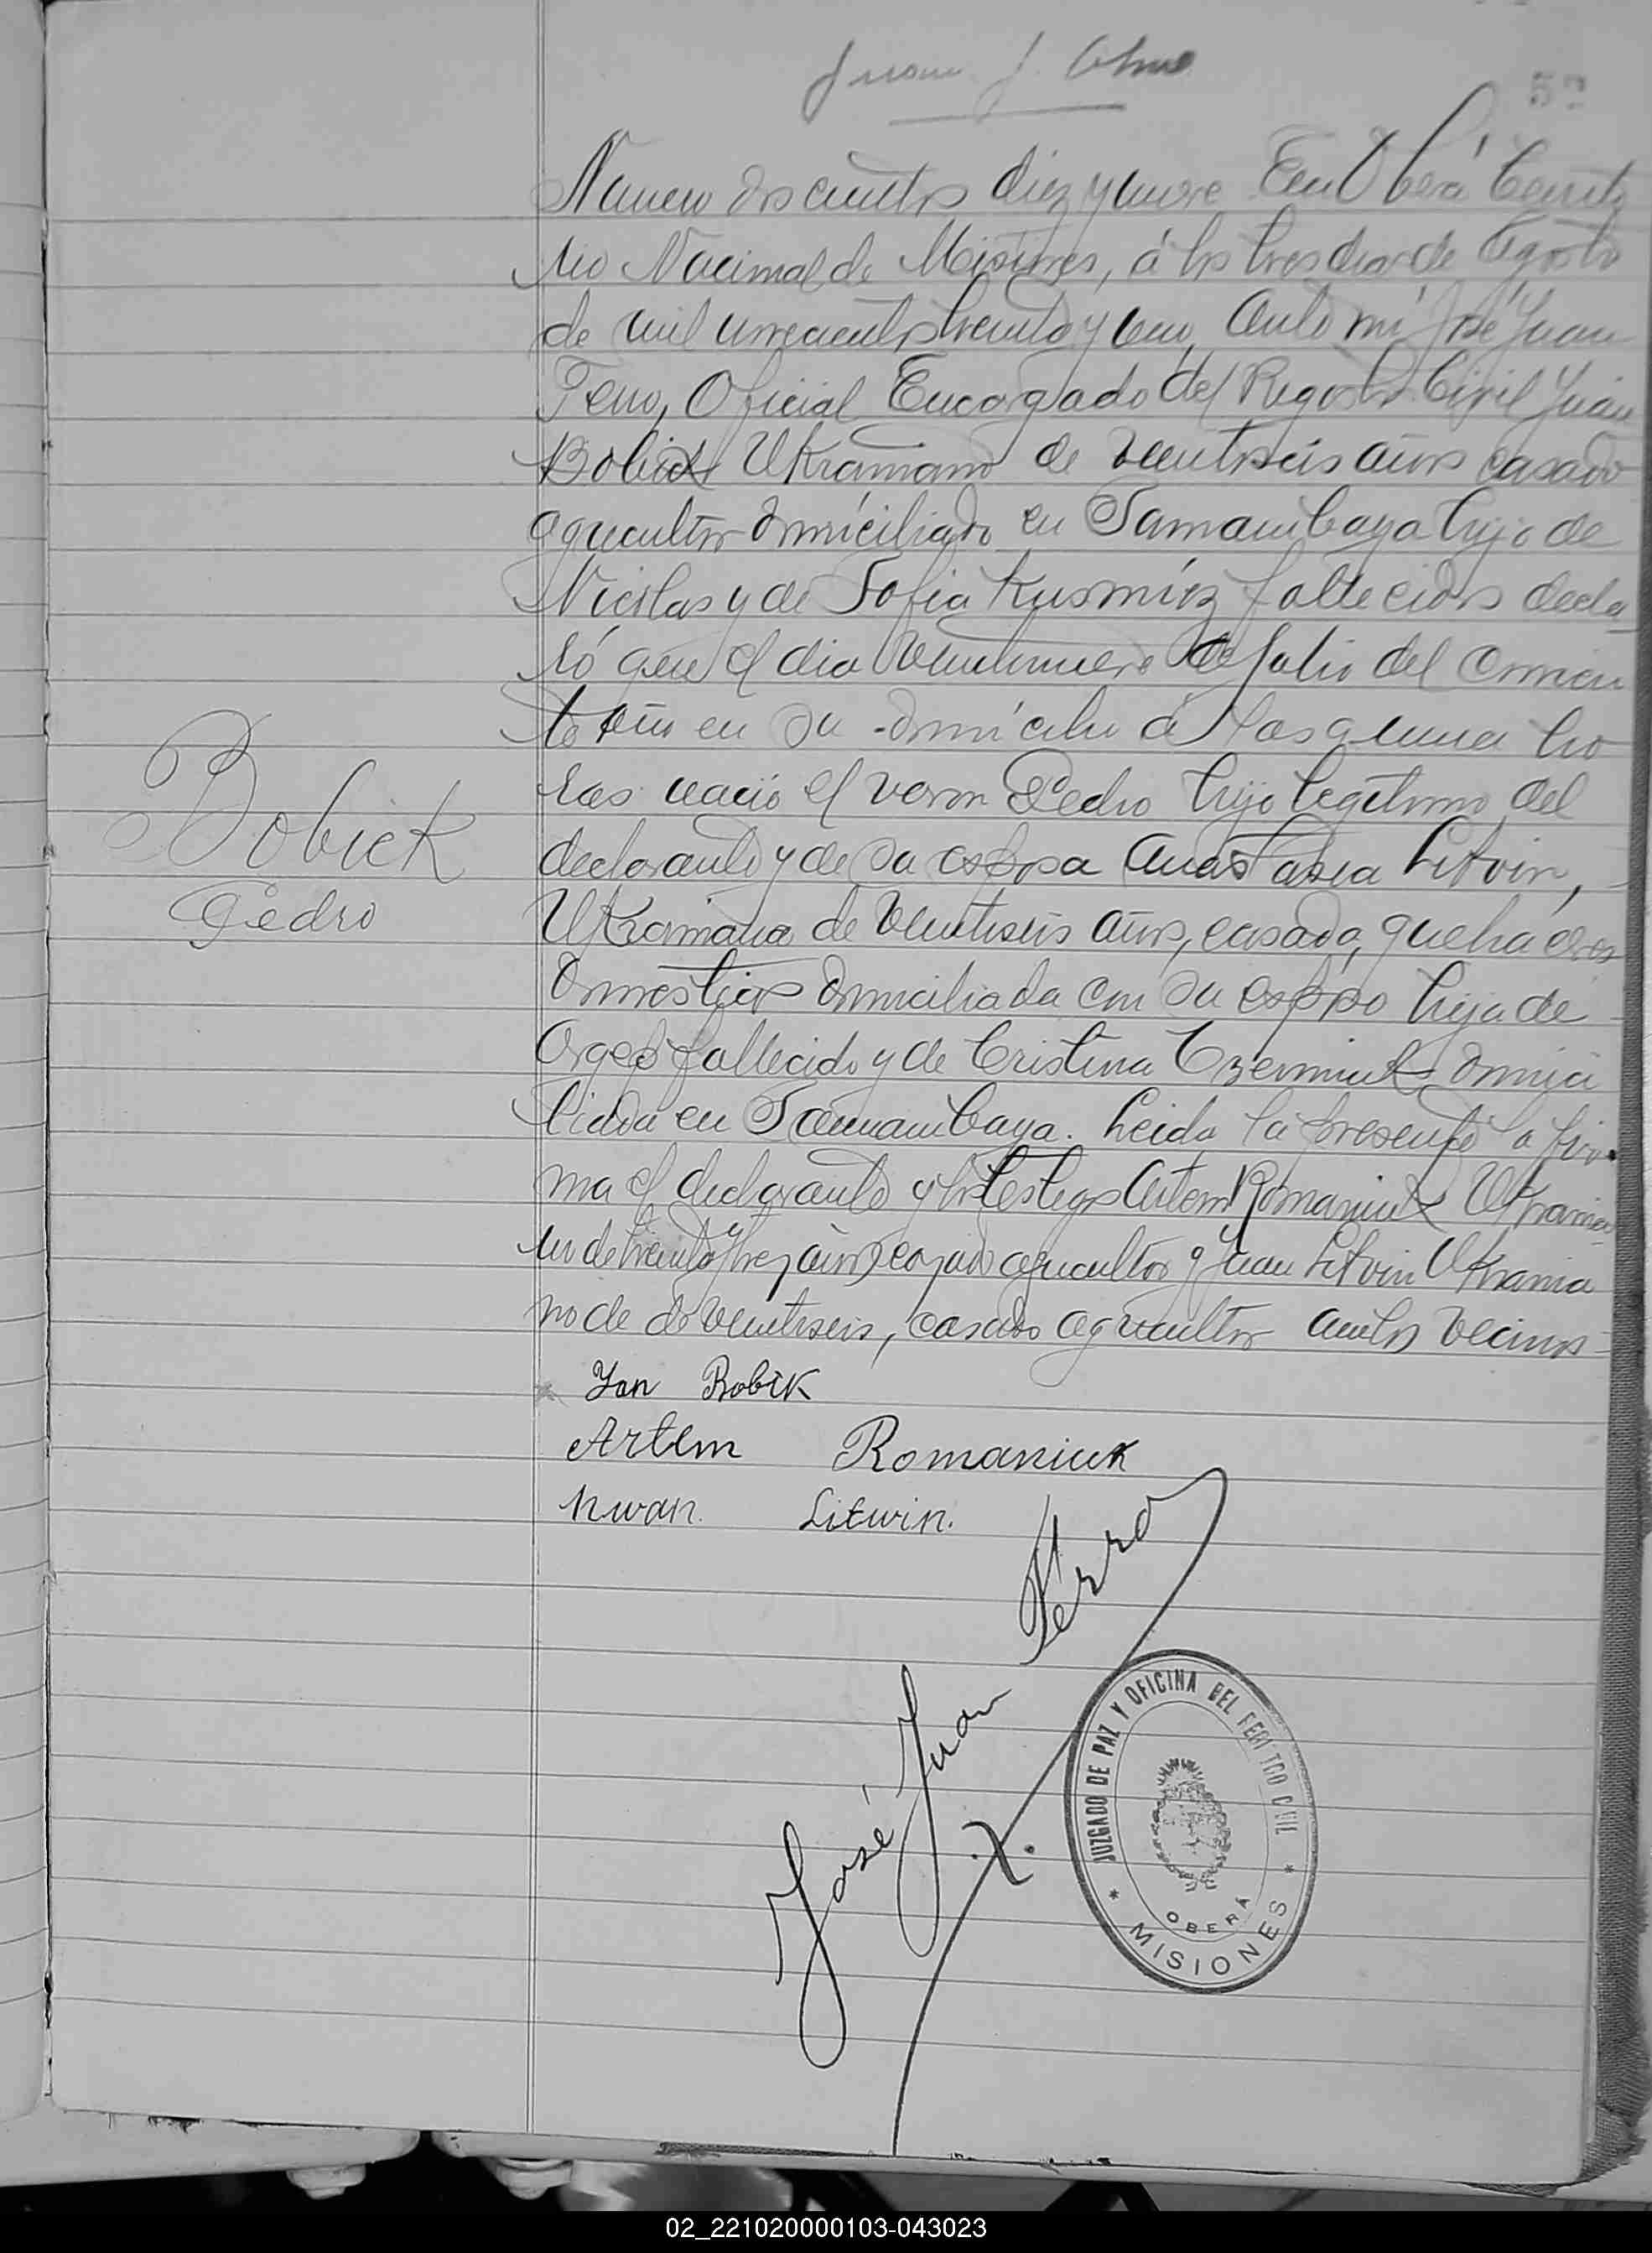 Juan J.
52
Numero doscientos diez y nueve En Oberá Territo
rio Nacional de Misiones, á los tres dias de Agosto
de mil novecientos treinta y uno, Ante mi José Juan
Ferro, Oficial Encargado del Registro Civil Juan
Bobick Ukraniano de veintiseis años casado
agricultor domiciliado en Samambaya hijo de
Nicolas y de Sofia Kusmicz fallecidos decla
ró que el dia veintinueve de Julio del corrien
te año en su domicilio á las quince ho
ras nació el varon Pedro hijo legitimo del
declarante y de su esposa Anastasia Litvin,
Ukraniana de veintiseis años, casada, quehaceres
domesticos domiciliada con su esposo hija de
fallecido y de Cristina Czerniuk domici
liada en Samambaya. Leida la presente la fir
ma el declarante y los testigos Artem Romaniuk Ukrania
no de treinta y tres años casado agricultor y Juan Litvin Ukrania
no de de veintiseis, casado agricultor ambos vecinos
Bobick
Pedro
Jan Bobik
Artem Romaniuk
Nwan. Litwin.
José Juan Ferro
JUZGADO DE PAZ Y OFICINA DEL REGISTRO CIVIL
OBERÁ
* MISIONES *
02_221020000103-043023